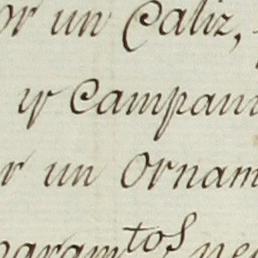 or un Caliz,
y Campani
r un Ornam
param.tos ne